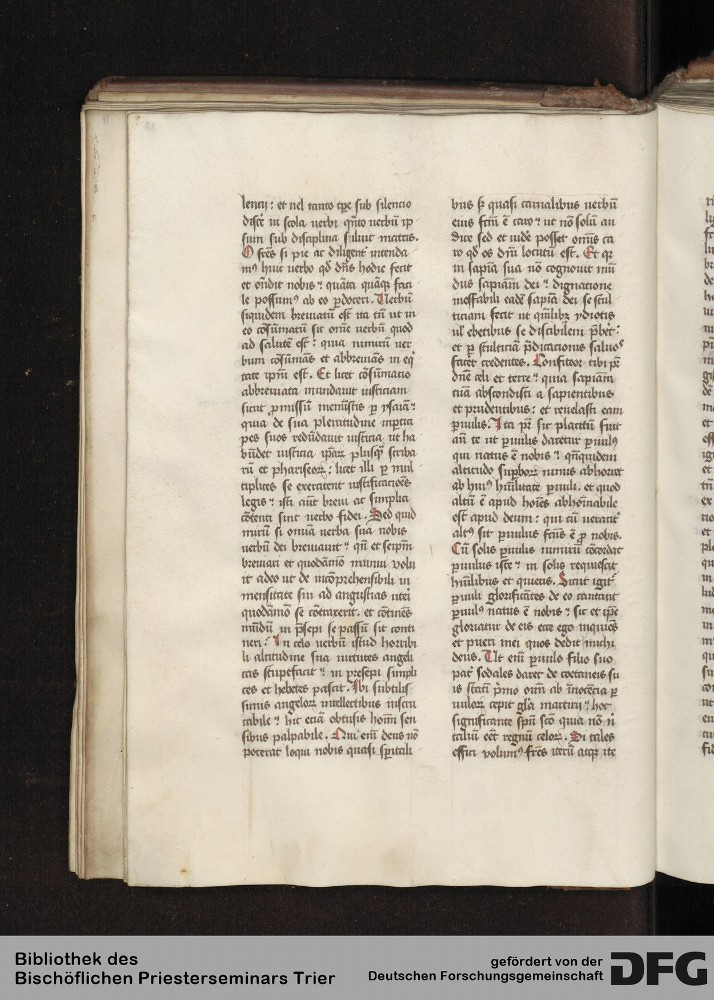 lencij : et vel tanto tpe sub silencio
discē in scola verbi qn̄to verbū ip
sum sub disciplina siluit matris.
O frēs si pie ac diligent̄ intenda
mꝰ huic verbo qd̄ dn̄s hodie fecit
et on̄dit nobis ⁊ quāta quāqꝫ faci
le possumꝰ ab eo p̱doceri. Verbū
siquidem breuiatū est ita tn̄ ut in
eo cōsumatū sit om̄e verbū quod
ad salutē est : quia nimirū ver
bum cōsumās et abbreuiās in eq̇
tate ip̄m est. Et licet cōsumatio
abbreuiata inundauit iusticiam
sicut p̱missū meministis p̱ ysaiā ⁊
quia de sua plenitudine in p̄tici
pes suos redūdauit iusticia ut ha
būdet iusticia ip̄aꝝ plusq̄ scriba
rū et phariseoꝝ : licet illi p̱ mul
tiplices se exercitent iustificacioēs
legis ⁊ isti aūt breui ac simplici
cōtenti sint verbo fidei. Sed quid
mirū si omīa verba sua nobis
verbū dei breuiauit ⁊ qn̄ et seip̄m
breuiari et quodāmo minui volu
it adeo ut de incōprehensibili in
mensitate sui ad angustias uteri
quodāmō se cōtraxerit. et cōtinēs
mūdū in p̄sepi se passū sit conti
neri ⁊ In celo verbū istud horribi
li altitudine sua virtutes angeli
cas stupefacit ⁊ in presepi simpli
ces et hebetes pascit. Ibi subtilis
simis angeloꝝ intellectibus inscru
tabile ⁊ hic eciā obtusis homī sen
sibus palpabile. Qui enī deus nō
poterat loqui nobis quasi sp̄itali
bus sꝫ quasi carnalibus verbū
eius fc̄m ē caro ⁊ ut nō solū au
dire sed et videre posset om̄is ca
ro qd̄ os dn̄i locutū est. Et qꝛ
in sapīa sua nō cognouit mū
dus sapiām dei ⁊ dignatione
ineffabili eadē sapīa dei se stul
ticiam fecit ut quilibꝫ ydiotis
ul' ebetibus se discibilem p̄bet̄ :
et p̱ stulticiā p̄dicationis saluos
facēt credentes. Confiteor tibi pr̄
dn̄e celi et terre ⁊ quia sapiam
tuā abscondisti a sapientibus
et prudentibus : et reuelasti eam
p̱uulis. Ita pr̄ sic placitū fuit
an̄ te ut p̱uulis daretur p̱uulꝰ
qui natus ē nobis ⁊ qn̄quidem
altitudo sup̱boꝝ nimis abhorret
ab huiꝰ hūilitate p̱uuli. et quod
altū ē apud hoīes abhoīnabile
est apud deum : qui cū veracit̄
altꝰ sit p̱uulus fc̄us ē ꝓ nobis.
Cū solis p̱uulis nimirū cōcordat
p̱uulus iste ⁊ in solis requiescit
hūilibus et quietis. Sicut igit̄
p̱uuli glorificātes de eo cantant
p̱uulꝰ natus ē nobis ⁊ sic et ip̄e
gloriatur de eis ecce ego inquiēs
et pueri mei quos dedit michi
deus. Ut enī p̱uulo filio suo
pat̄ sodales daret de coetaneis su
is statī p̄mo om̄i ab īnocēcia p̱
uuloꝝ cepit gl̄a martirij ⁊ hoc
significante sp̄u sc̄o quia nō n̄
taliū eēt regnū celoꝝ. Si tales
effici volumꝰ frēs iterū atqꝫ ite
Bibliothek des
Bischöflichen Priesterseminars Trier
gefördert von der
Deutschen Forschungsgemeinschaft
DFG